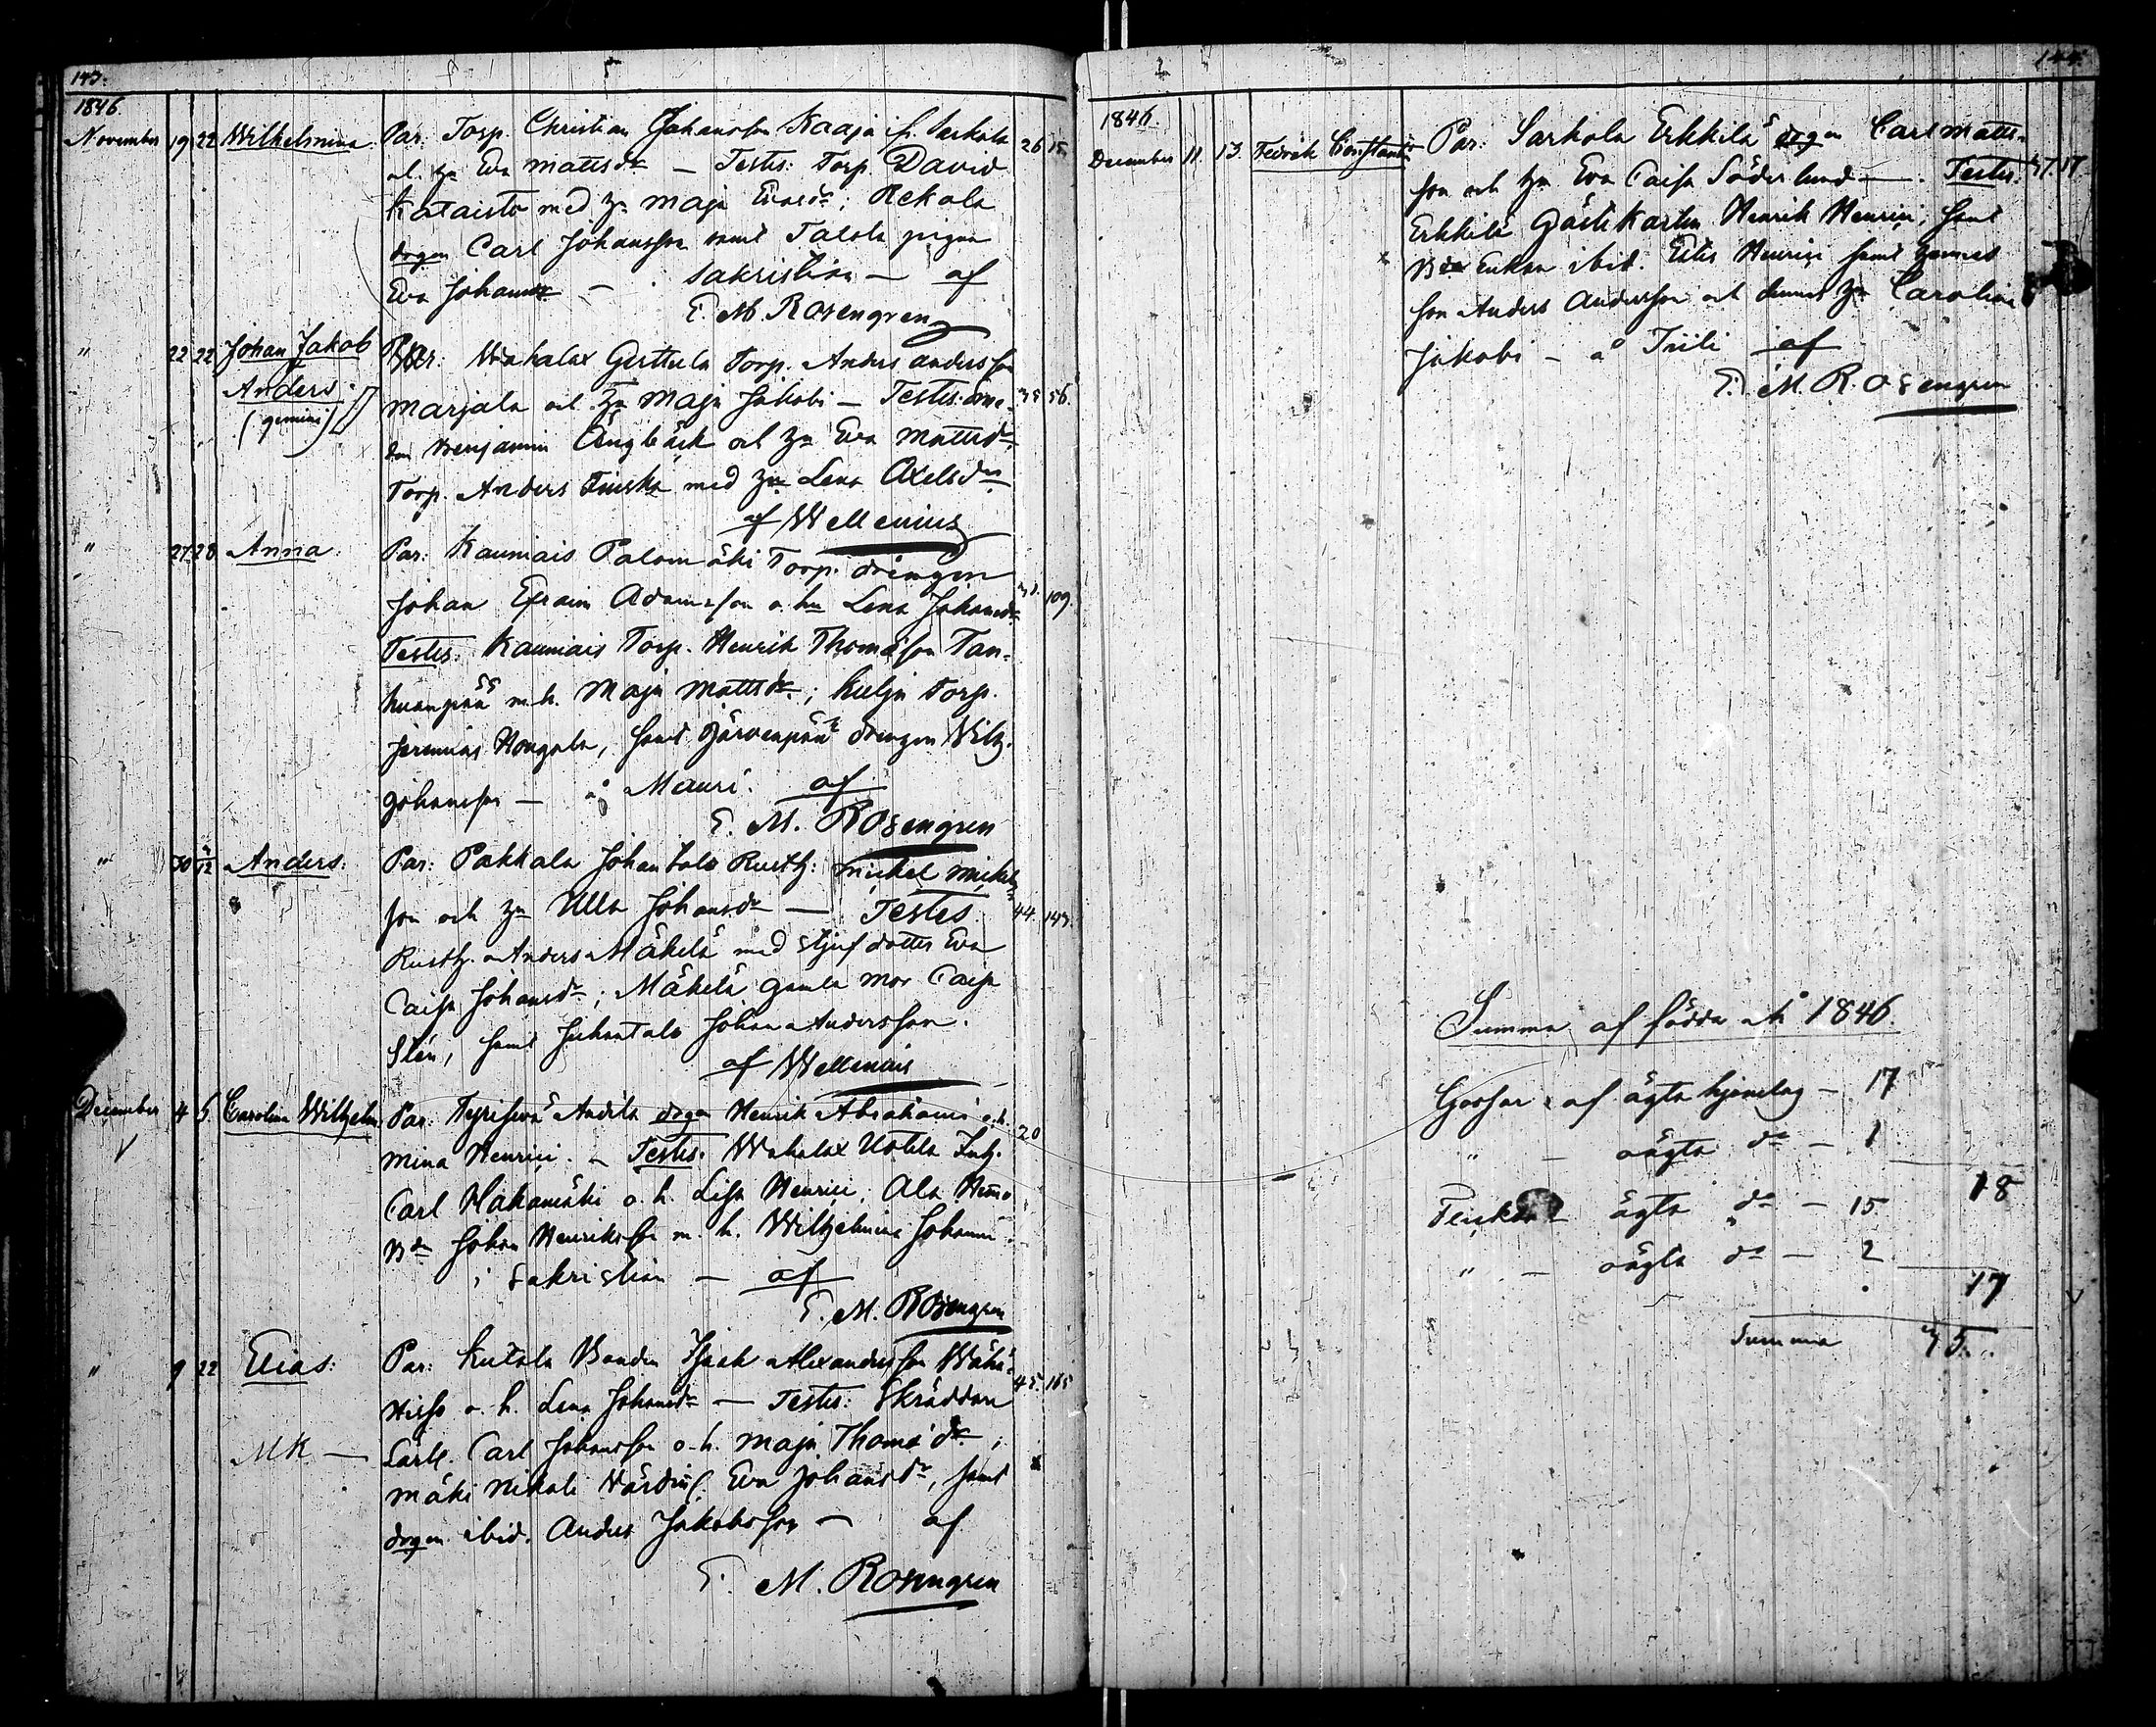 143.
1846.
November 19 22 Wilhelmina: Par: Torp. Christian Johansson Kaaja fr. Sarkola 26 15.
o. h. Eva Mattsdr — Testes: Torp. David
Kataisto med h. Maja Ericsdr; Rekola
drgen Carl Johansson samt Talola pigan
Eva Johansdr — Sakristian — af
E. M. Rosengren
" 22 22 Johan Jakob
Anders
(gemini)
Par: Wahalax Gerttula Torp. Anders Andersson
Marjala och h. Maja Jakobi — Testes: 35 56.
Benjamin Ängbäck och h. Eva Mattsdr,
Torp. Anders Tuiska med h. Lena Axelsdr
af Wellenius
" 27 28 Anna: Par: Kauniais Palomäki Torp. drängen
Johan Efraim Adamsson o. hu Lena Johansdr 109.
Testes: Kauniais Torp. Henrik Thomasson Tan-
huanpää m. h. Maja Mattsdr; Kulju Torp.
Jeremias Hongola, samt Järvenpää drengen Wilh.
Johansson — å Mauri. af
E. M. Rosengren
" 30 4/12 Anders: Par: Pakkala Juhantalo Rusth: Michel Mickels-
son och h. Ulla Johansdr — Testes: 44. 143.
Rusth. Anders Mäkelä med stjuf dotter Eva
Caisa Johansdr; Mäkelä gamla mor Caisa
Sten, samt Juhantalo Johan Andersson.
af Wellenius
December 4 5 Carolina Wilhelm. Par: Hyrisevä Anttila drgen Henrik Abrahami o. h. 20
Mina Henrici. — Testes: Wahalax Uotila Inh.
Carl Hakamäki o. h. Lisa Henrici, Ala
Bdn Johan Henriksson m. h. Wilhelmina Johanni.
i Sakristian — af
E. M. Rosengren
" 9 22 Elias: Par: Kutala Bonden Isaak Alexandersson Wähä-
Hisso o. h. Lena Johansdr — Testes: Skräddare 45. 165
MK — Lärl. Carl Johansson o. h. Maja Thomædr;
Mäki Nikali Värdinn. Eva Johansdr, samt
drgen ibid. Anders Jakobsson — af
E. M. Rosengren
144.
1846.
December 11. 13. Fredrik Constantin Par: Sarkola Erkkilä drgen Carl Matts-
son och h. Eva Caisa Söderlund —. Testes: 37. 17
Erkkilä Gästikarlen Henrik Henrici, samt
Enkan ibid. Henrici samt
son Anders Andersson och dennes h. Carolina
Jakobi — å Triili af
E. M. Rosengren
Summa af födda år 1846.
Gossar af ägta hjonelag — 17
" — oägta do — 1
18
Flickor — ägta do — 15
" — oägta do — 2
17
Summa 35.